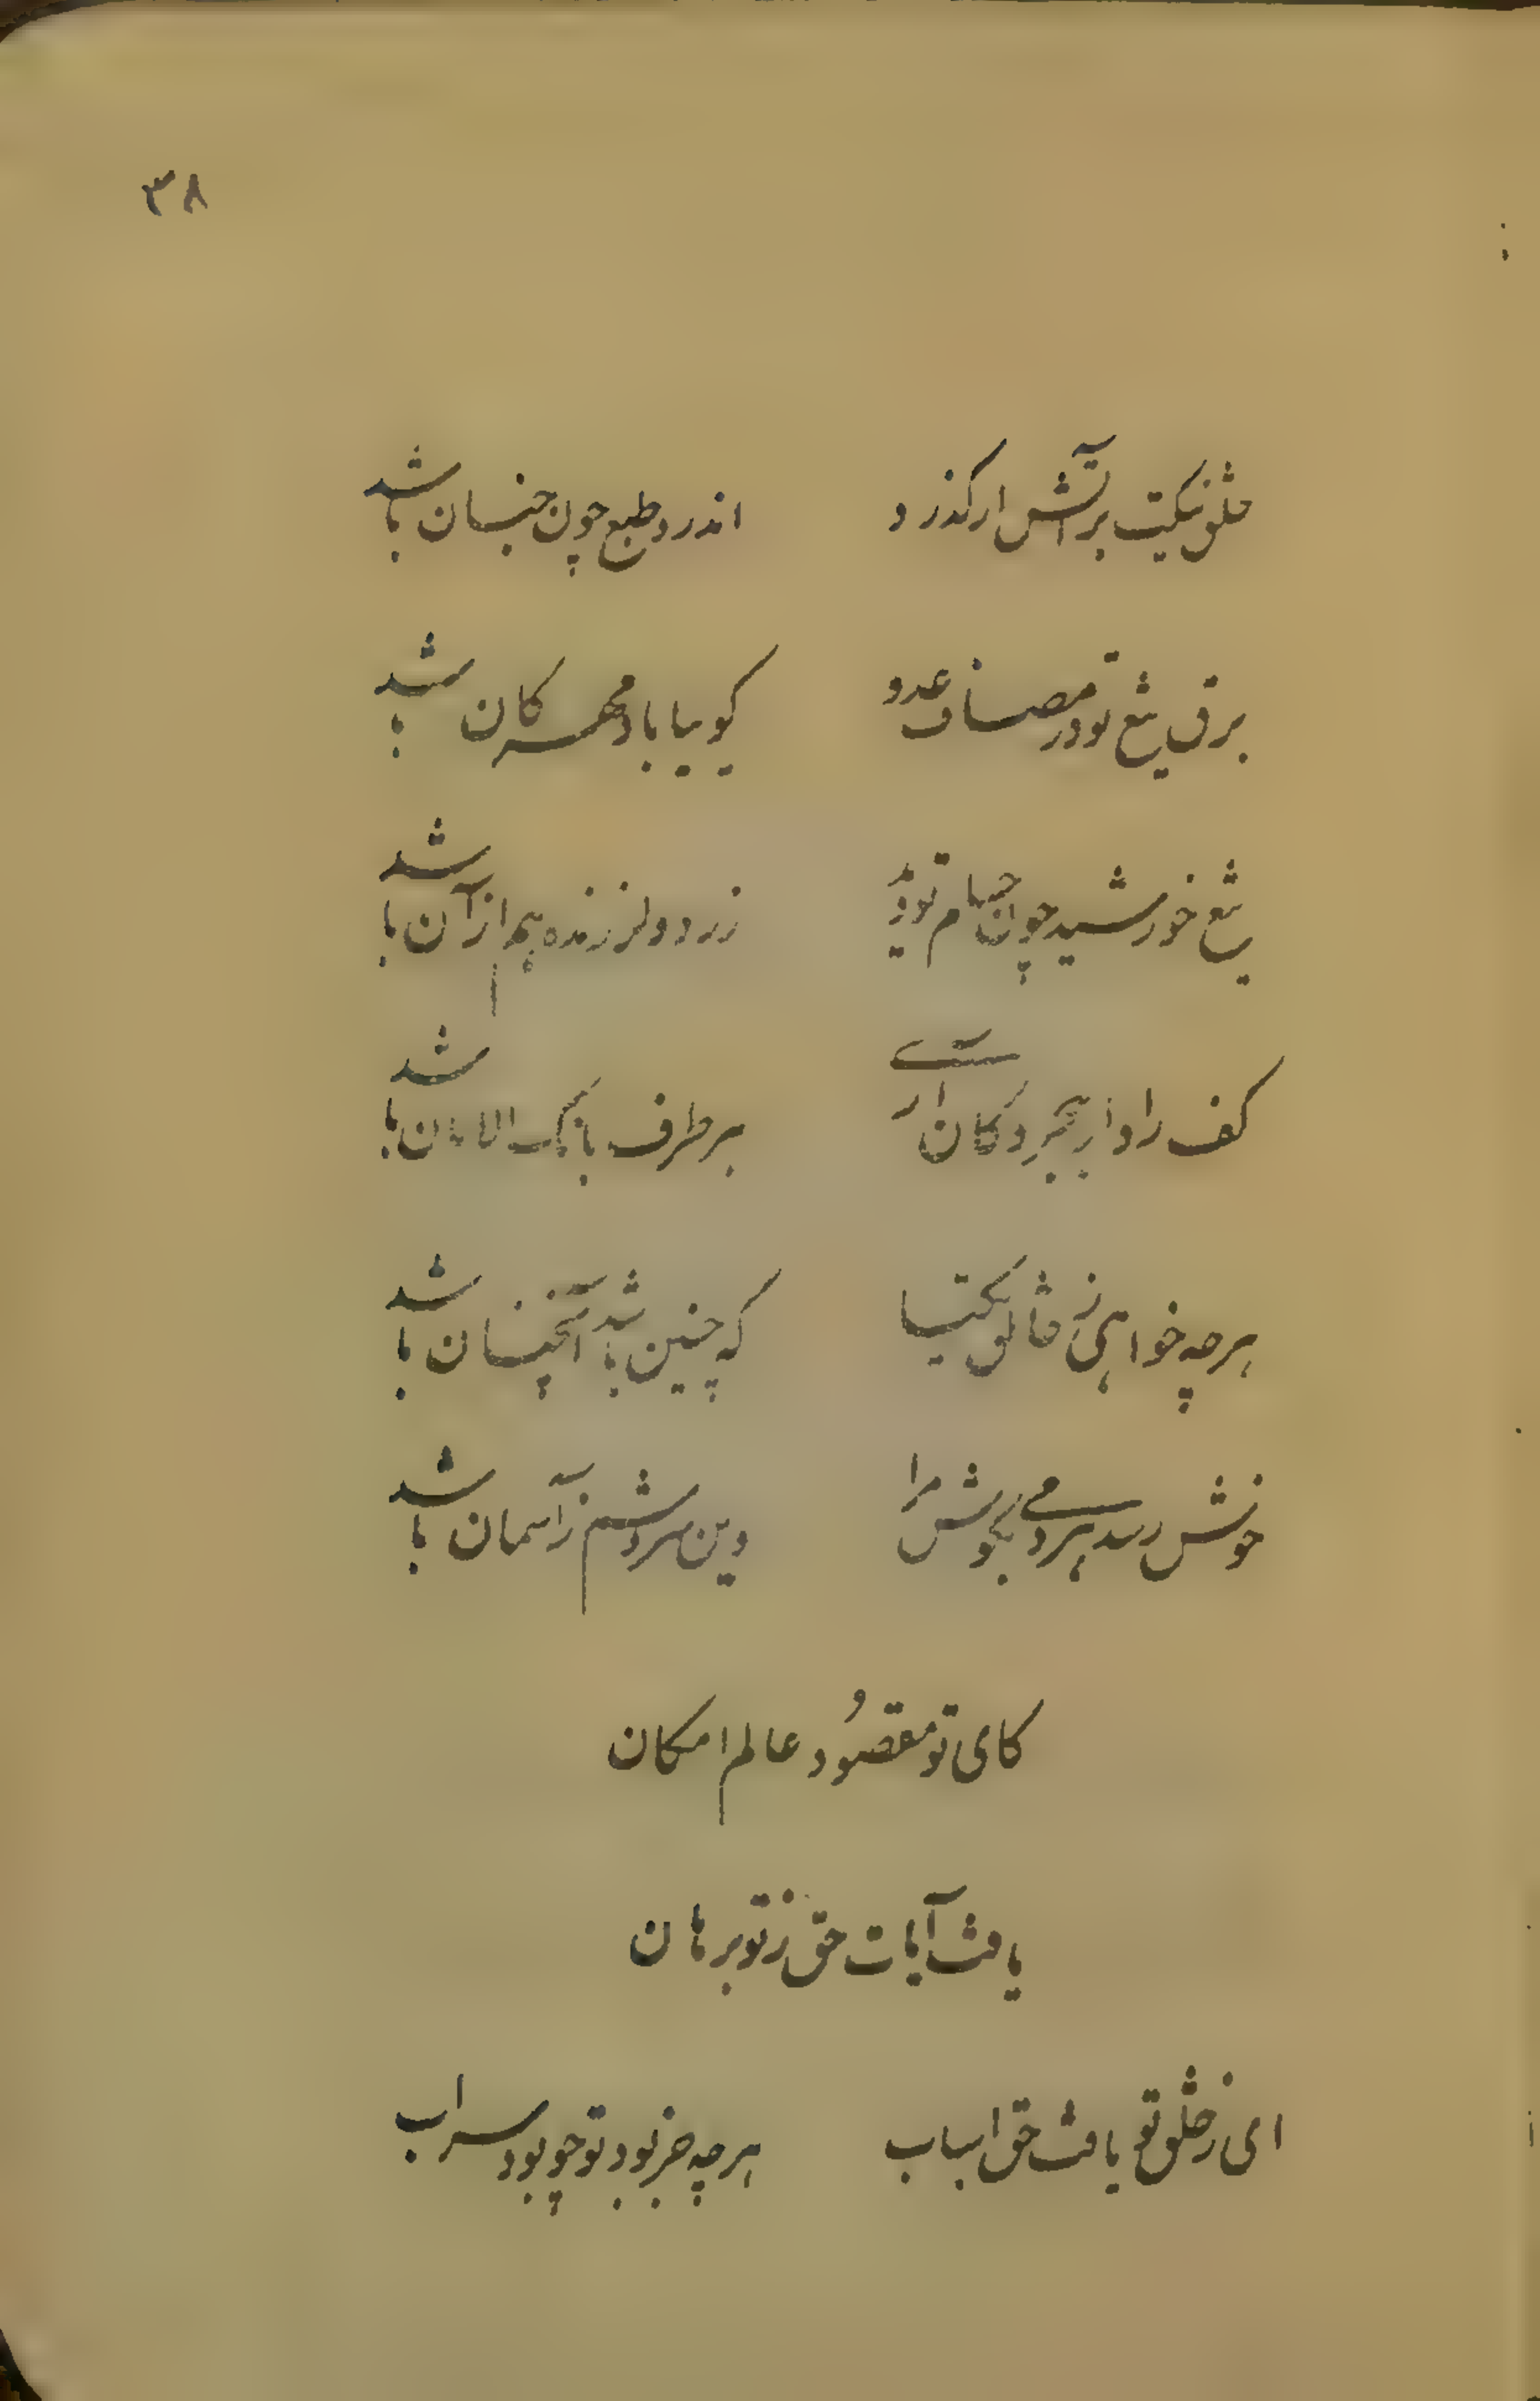 ۳۸
خلق نیکت بر آتش ار گذرد اندرو طبع چون جنان باشد
برق تیغ تو در مصاف عدو گوییا باد مهرکان باشد
تیغ خورشید چون نیام تو دید زرد و لرزنده هم از آن باشد
کف راد ار ببحر و کان آری هر طرف بانگ الامان باشد
هرچه خواهی ز خالق یکتا که چنین باشد آنچنان باشد
خوش رسد هر دمی بگوش مرا وین سروشم ز آسمان باشد
کای تو مقصُود عالم امکان
یافت آیات حق ز تو برهان
ای ز خلق تو یافت حق اسباب هرچه جز بود تو چو بود سراب